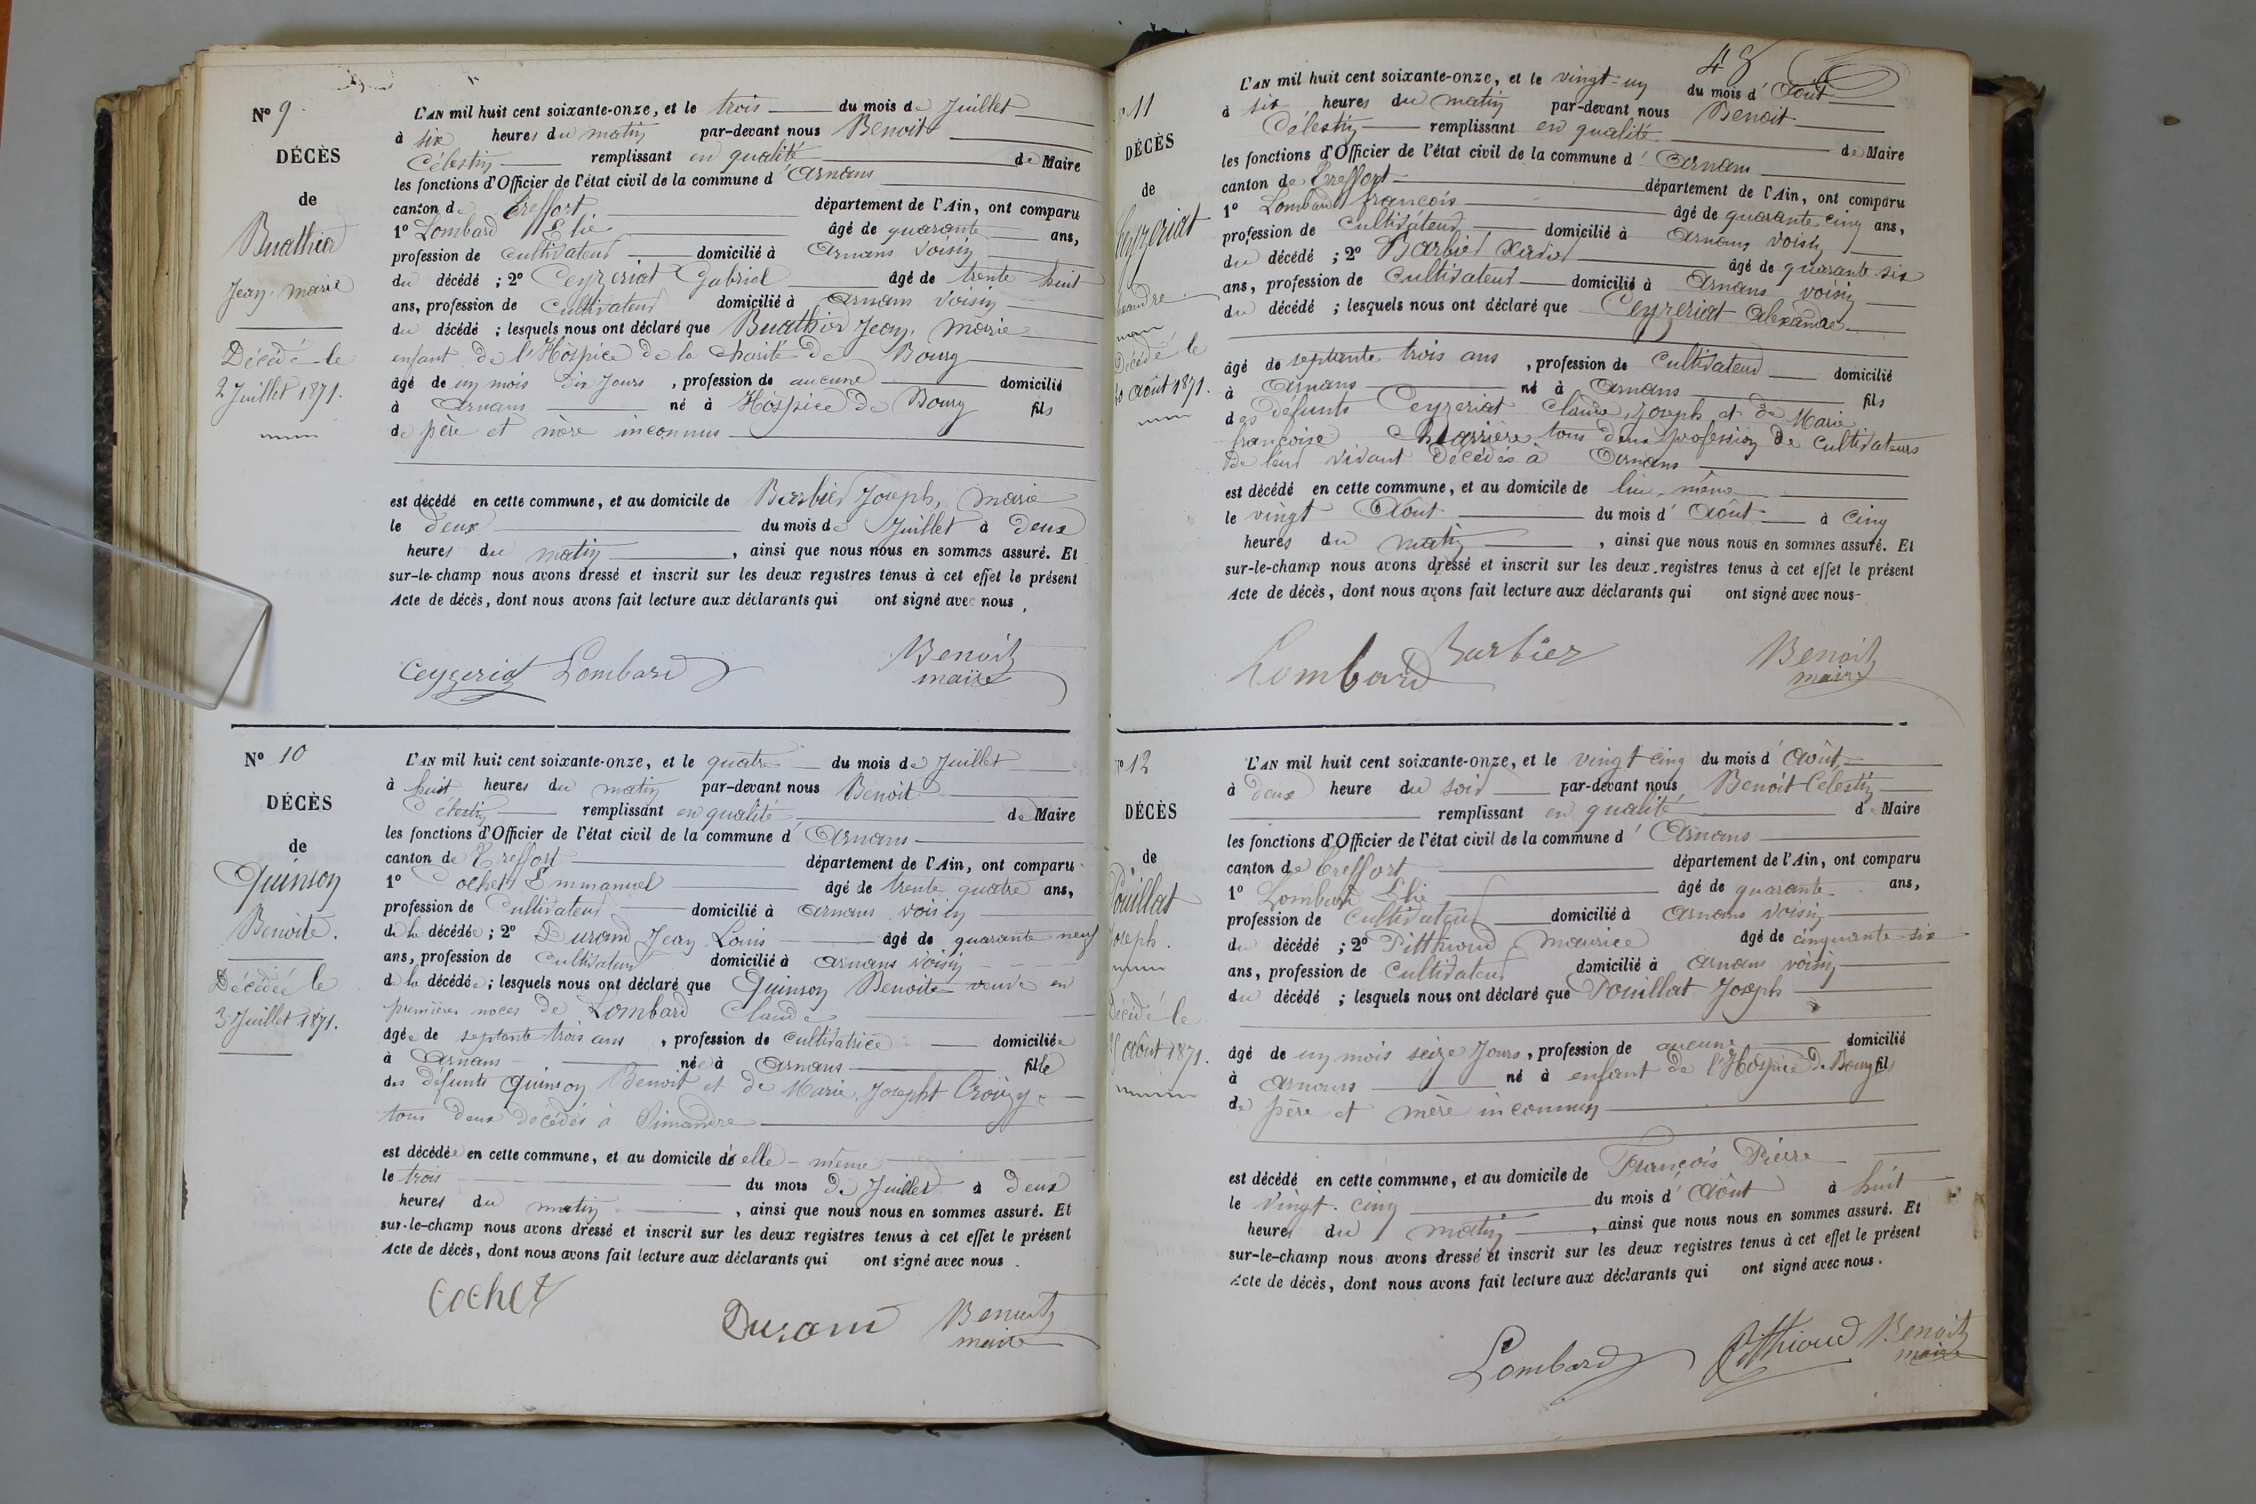 N° 9
DÉCÈS
de
Buathier
Jean marie
Décédé le
2 Juillet 1871.
L'AN mil huit cent soixante-onze, et le trois du mois de Juillet
à six heures du matin par-devant nous Benoit
Célestin remplissant en qualité de Maire
les fonctions d'Officier de l'état civil de la commune d'Arnans
canton de Treffort département de l'Ain, ont comparu
1° Lombard Elie âgé de quarante ans,
profession de cultivateur domicilié à Arnans voisin
du décédé ; 2° Ceyzeriat Gabriel âgé de trente huit
ans, profession de Cultivateur domicilié à Arnans voisin
du décédé ; lesquels nous ont déclaré que Buathier Jean, Marie
enfant de l'Hospice de la charité de Bourg
âgé de un mois dix Jours, profession de aucune domicilié
à Arnans né à Hospice de Bourg fils
de père et mère inconnus
est décédé en cette commune, et au domicile de Barbier Joseph, Marie
le deux du mois de Juillet à deux
heures du matin, ainsi que nous nous en sommes assuré. Et
sur-le-champ nous avons dressé et inscrit sur les deux registres tenus à cet effet le présent
Acte de décès, dont nous avons fait lecture aux déclarants qui ont signé avec nous.
Ceyzeriat Lombard Benoit
maire
N° 10
DÉCÈS
de
Quinson
Benoite.
Décédée le
3 Juillet 1871.
L'AN mil huit cent soixante-onze, et le quatre du mois de Juillet
à huit heures du matin par-devant nous Benoit
Célestin remplissant en qualité de Maire
les fonctions d'Officier de l'état civil de la commune d'Arnans
canton de Treffort département de l'Ain, ont comparu
1° Cochet Emmanuel âgé de trente quatre ans,
profession de Cultivateur domicilié à Arnans voisin
de la décédée ; 2° Durand Jean Louis âgé de quarante neuf
ans, profession de Cultivateur domicilié à Arnans voisin
de la décédée ; lesquels nous ont déclaré que Quinson Benoite veuve en
premières noces de Lombard Claude
âgée de septante trois ans, profession de cultivatrice domiciliée
à Arnans née à Arnans fille
des défunts Quinson Benoit et de Marie, Josepht
tous deux décédés à Simandre
est décédée en cette commune, et au domicile d'elle-même
le trois du mois de Juillet à deux
heures du matin, ainsi que nous nous en sommes assuré. Et
sur-le-champ nous avons dressé et inscrit sur les deux registres tenus à cet effet le présent
Acte de décès, dont nous avons fait lecture aux déclarants qui ont signé avec nous.
Cochet Durand Benoit
maire
48
11
DÉCÈS
de
Ceyzeriat
Décédé le
20 Août 1871.
L'AN mil huit cent soixante-onze, et le vingt-un du mois d'Août
à six heures du matin par-devant nous Benoit
Célestin remplissant en qualité de Maire
les fonctions d'Officier de l'état civil de la commune d'Arnans
canton de Treffort département de l'Ain, ont comparu
1° Lombard françois âgé de quarante cinq ans,
profession de Cultivateur domicilié à Arnans voisin
du décédé ; 2° Barbier Xavier âgé de quarante six
ans, profession de Cultivateur domicilié à Arnans voisin
du décédé ; lesquels nous ont déclaré que Ceyzeriat Alexandre
âgé de septante trois ans, profession de Cultivateur domicilié
à Arnans né à Arnans fils
des défunts Ceyzeriat Claude, Joseph et de Marie
françoise Charrière, tous deux profession de Cultivateurs
de leur vivant décédés à Arnans
est décédé en cette commune, et au domicile de lui même
le vingt Août du mois d'Août à cinq
heures du matin, ainsi que nous nous en sommes assuré. Et
sur-le-champ nous avons dressé et inscrit sur les deux registres tenus à cet effet le présent
Acte de décès, dont nous avons fait lecture aux déclarants qui ont signé avec nous
Lombard Barbier Benoit
maire
12
DÉCÈS
de
Pouillat
Joseph.
Décédé le
25 Août 1871.
L'AN mil huit cent soixante-onze, et le vingt cinq du mois d'Août
à deux heure du soir par-devant nous Benoit Célestin
remplissant en qualité de Maire
les fonctions d'Officier de l'état civil de la commune d'Arnans
canton de Treffort département de l'Ain, ont comparu
1° Lombard Elie âgé de quarante ans,
profession de Cultivateur domicilié à Arnans voisin
du décédé ; 2° Pitthioud Maurice âgé de cinquante-six
ans, profession de Cultivateur domicilié à Arnans voisin
du décédé ; lesquels nous ont déclaré que Pouillat Joseph
âgé de un mois seize Jours, profession de aucune domicilié
à Arnans né à enfant de l'Hospice de Bourg fils
de père et mère inconnus
est décédé en cette commune, et au domicile de François Pierre
le vingt. cinq du mois d'Août à huit
heures du matin, ainsi que nous nous en sommes assuré. Et
sur-le-champ nous avons dressé et inscrit sur les deux registres tenus à cet effet le présent
Acte de décès, dont nous avons fait lecture aux déclarants qui ont signé avec nous.
Lombard Pitthioud Benoit
maire